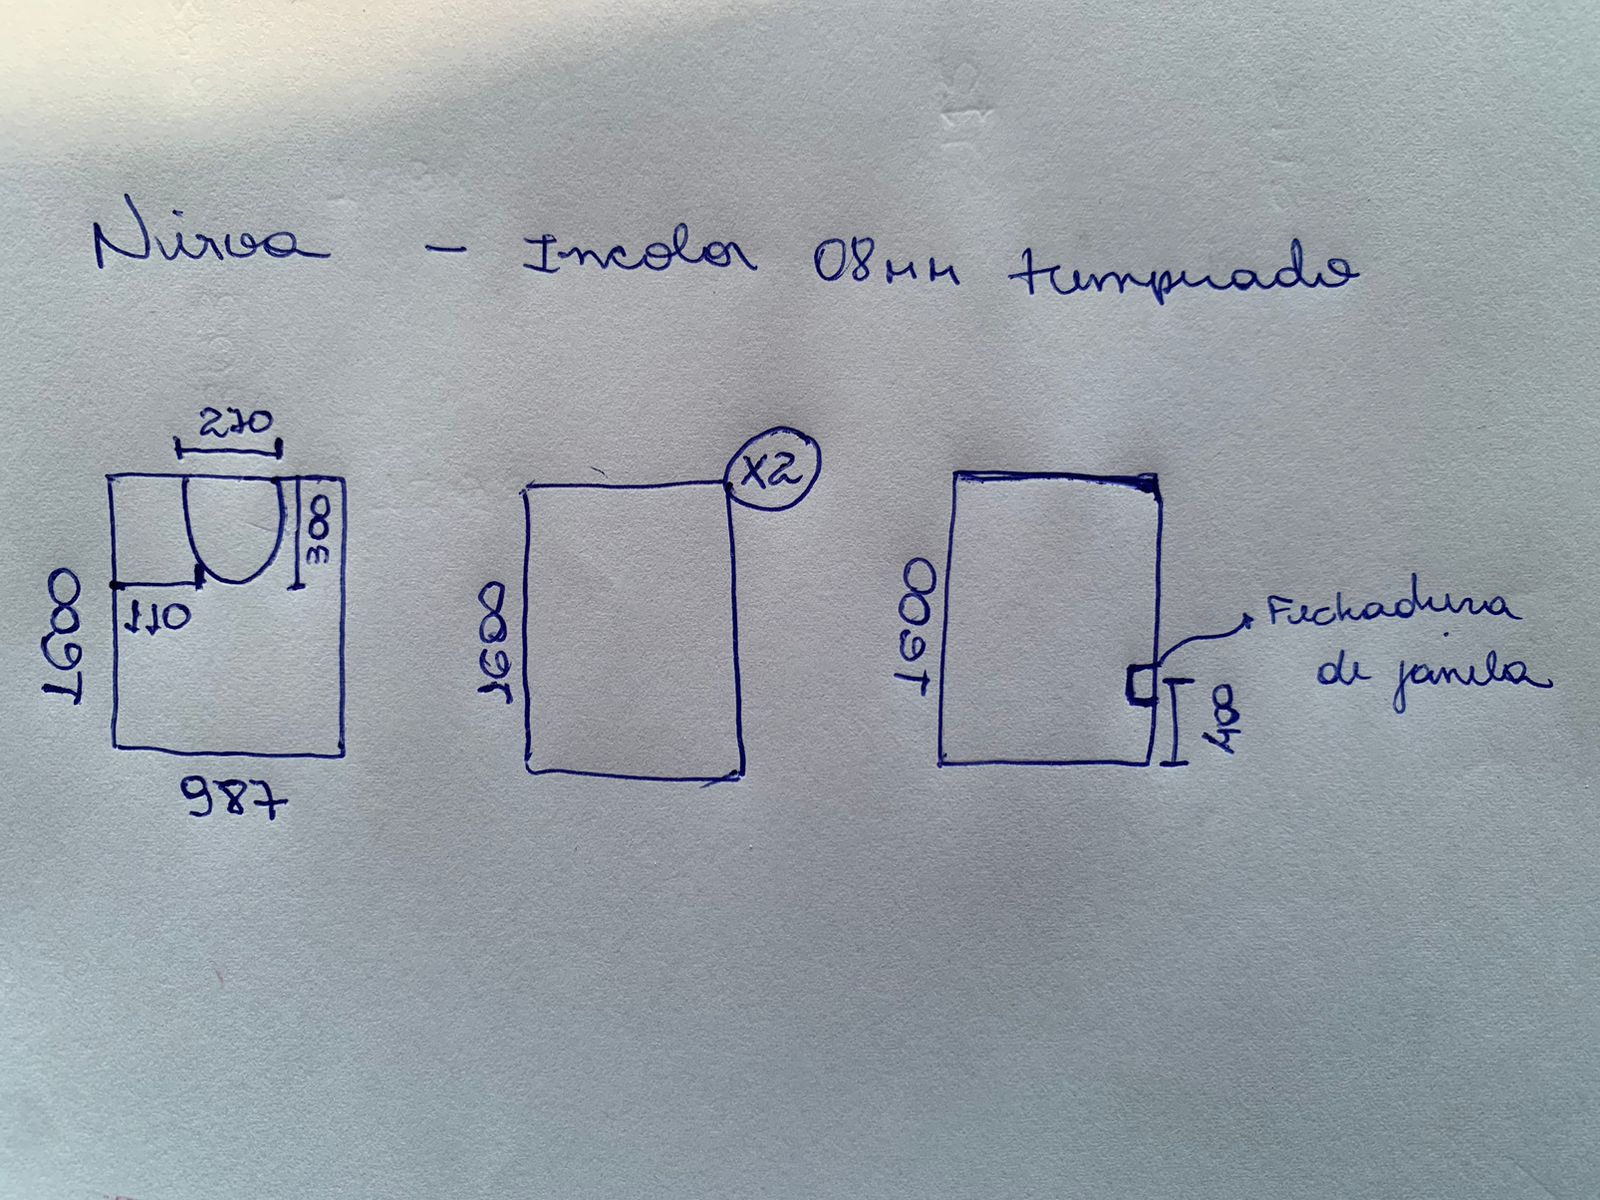 Nirva - Incolor 08mm temperado
270
300
110
1600
987
X2
1600
1600
Fechadura
de janela
40